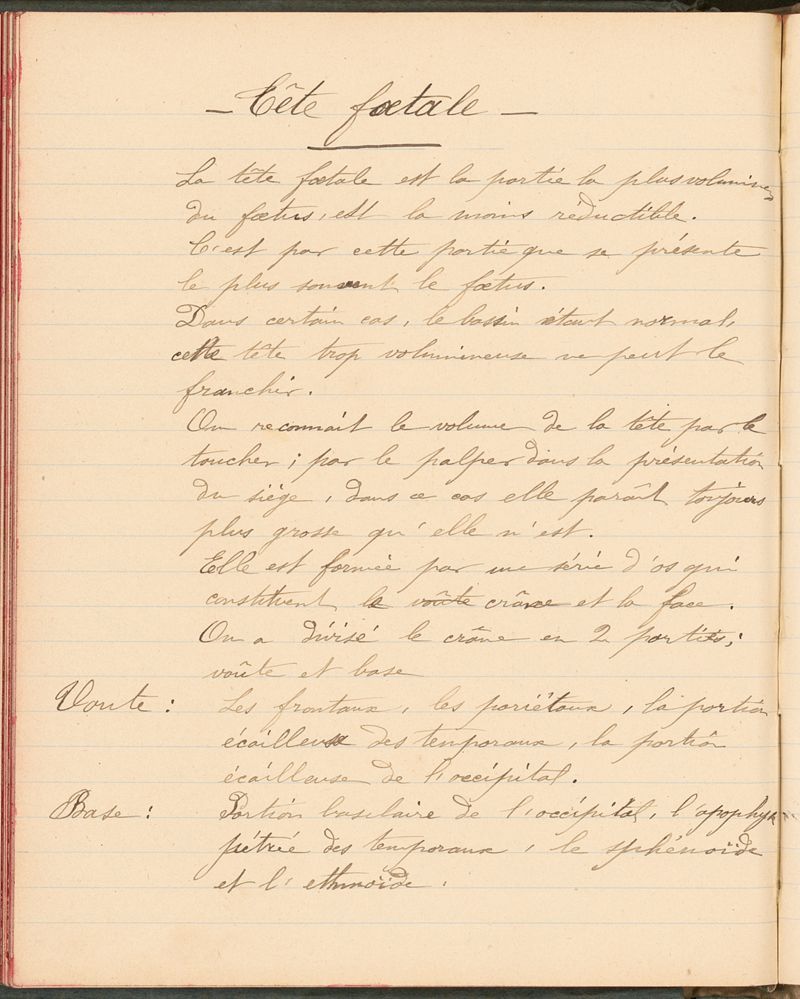 — Tête fœtale —
La tête fœtale est la partie la plus volumineuse
du fœtus, est la moins réductible.
C'est par cette partie que se présente
le plus souvent le fœtus.
Dans certain cas, le bassin étant normal,
cette tête trop volumineuse ne peut le
franchir.
On reconnaît le volume de la tête par le
toucher ; par le palper dans la présentation
du siège, dans ce cas elle paraît toujours
plus grosse qu'elle n'est.
Elle est formée par une série d'os qui
constituent le voûte crâne et la face.
On a divisé le crâne en 2 parties ;
voûte et base
Voute : Les frontaux, les pariétaux, la portion
écailleuse des temporaux, la portion
écailleuse de l'occipital.
Base : Portion basilaire de l'occipital, l'apophyse
pétrée des temporaux, le sphénoïde
et l'ethmoïde.